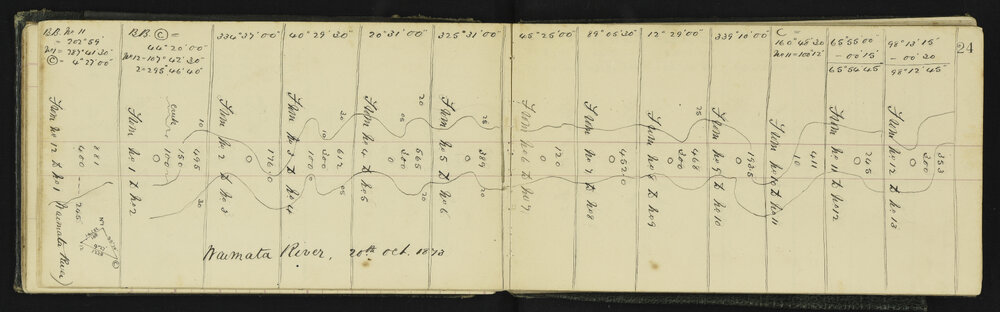 B.B. No 11
= 202°59'
No 1 = 287°41'30"
Ⓒ = 4°27'00"
From No 12 to No 1 (Waimata River)
881
400
245
B.B. Ⓒ =
44°20'00"
No 12 = 107°42'30"
2 = 295°46'40"
From No 1 to No 2
Creek
10
495
150
100
0
30
334°37'00"
From No 2 to No 3
176.0
0
40°29'30"
From No 3 to No 4
30
10
612
300
100
0
05
20°31'00"
From No 4 to No 5
20
05
565
300
0
20
325°31'00"
From No 5 to No 6
25
389
0
20
45°25'00"
From No 6 to No 7
120
0
89°05'30"
From No 7 to No 8
452.0
0
12°29'00"
From No 8 to No 9
25
468
300
0
339°10'00"
From No 9 to No 10
193.5
0
C =
160°45'30
No 11 = 100°12'
From No 10 to No 11
411
10
65°55'00
- 00'15
65°54'45
From No 11 to No 12
245
0
98°13'15
- 00'30
98°12'45"
From No 12 to No 13
353
300
0
24
Waimata River, 20th Oct. 1873